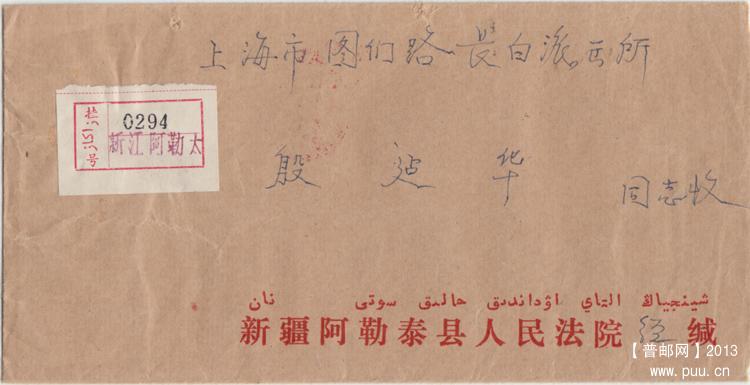 上海市图们路長白派出所
0294
新江阿勒太
号
殷 华
同志收
شينجياڭ التاي اۋداندىق حالىق سوتى نان
新疆阿勒泰县人民法院 经 缄
【普邮网】2013
www.puu.cn